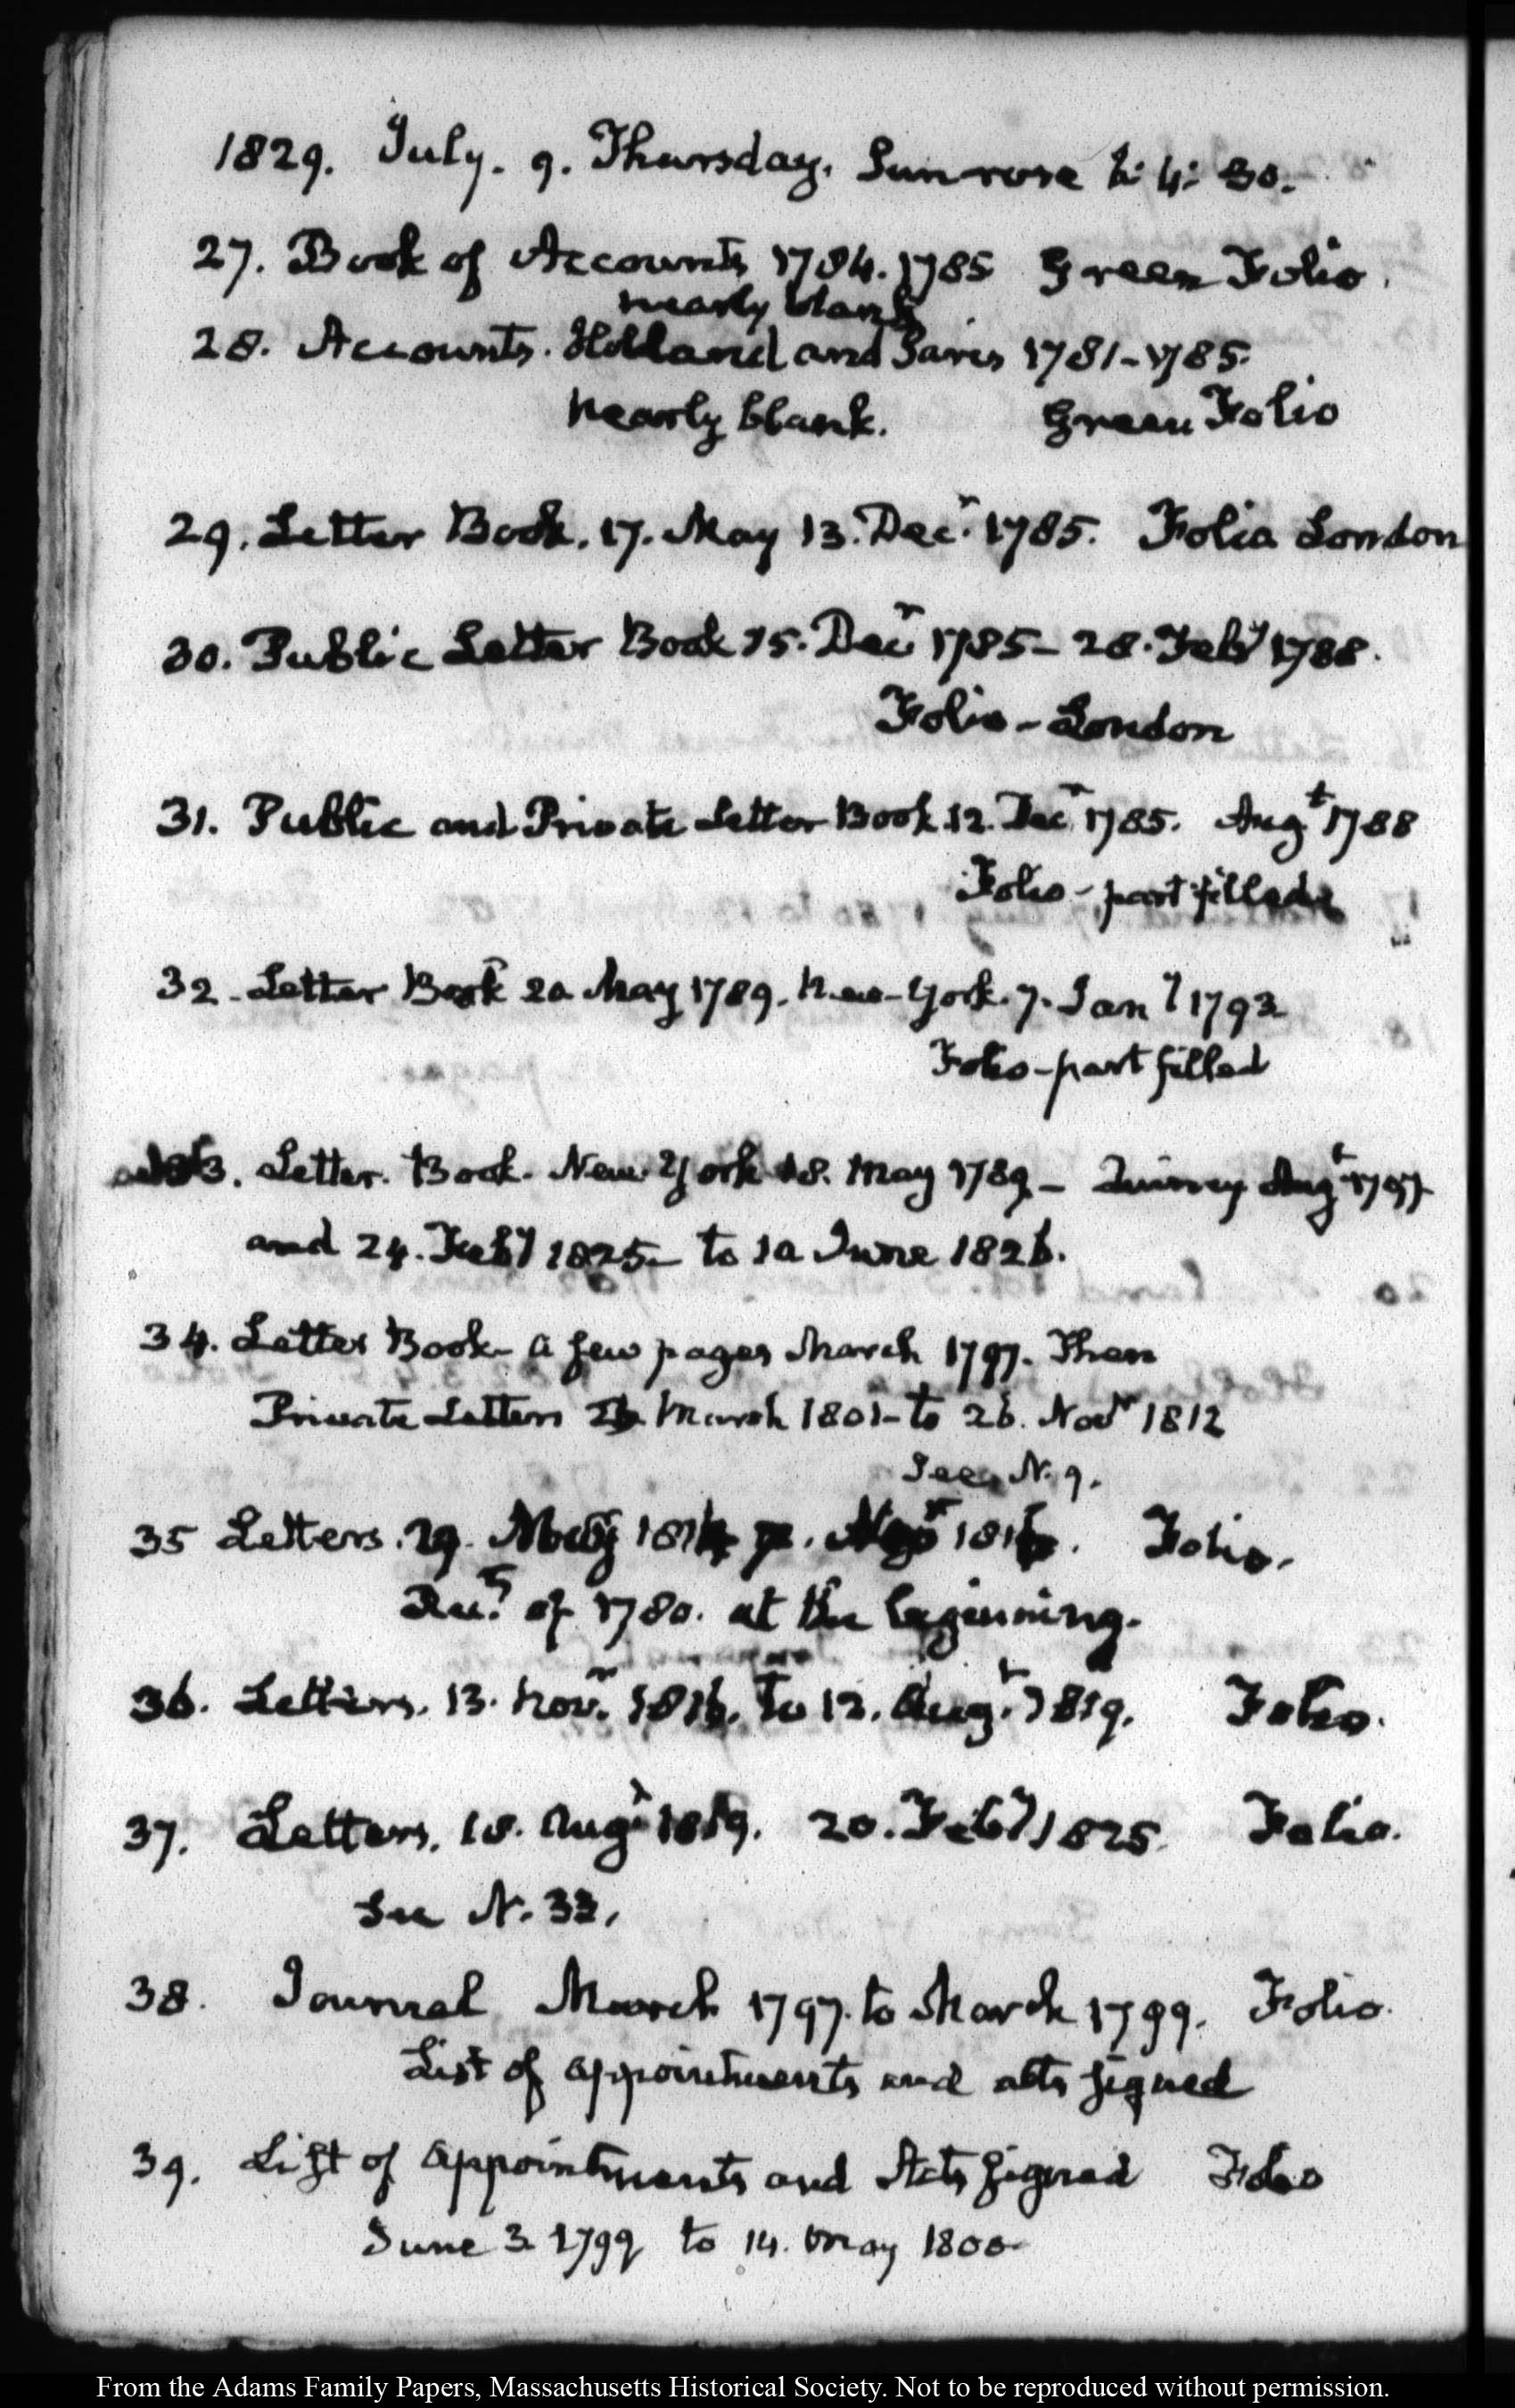 1829. July. 9. Thursday. Sun rose h: 4: 30.
27. Book of Accounts 1784. 1785 Green Folio.
nearly blank
28. Accounts. Holland and Paris 1781-1785.
nearly blank. Green Folio
29. Letter Book. 17. May 13. Decr. 1785. Folio London
30. Public Letter Book 15. Decr 1785- 28. Feby 1788.
Folio - London
31. Public and Private Letter Book 12. Decr 1785. Augt 1788
Folio - part filled
32. Letter Book 20 May 1789. New-York. 7. Jany 1793
Folio - part filled
33. Letter. Book. New York 18. May 1789 - Quincy Augt 1797
and 24. Feby 1825- to 10 June 1826.
34. Letter Book- a few pages March 1797. Then
Private Letters March 1801- to 26. Novr 1812
See N. 9.
35 Letters. 29. 181 Folio.
of 1780. at the beginning.
36. Letters. 13. Novr. 1816. to 12. Augt. 1819. Folio.
37. Letters. 18. Augt 1819. 20. Feby 1825. Folio.
See N. 33.
38. Journal March 1797. to March 1799. Folio.
List of appointments and acts signed
39. List of appointments and Acts signed Folio
June 3 1799 to 14. May 1800
From the Adams Family Papers, Massachusetts Historical Society. Not to be reproduced without permission.